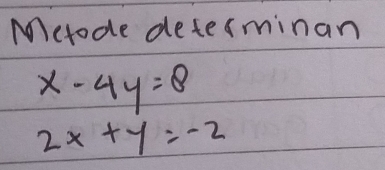 Metode determinan
x - 4y = 8
2x + y = -2